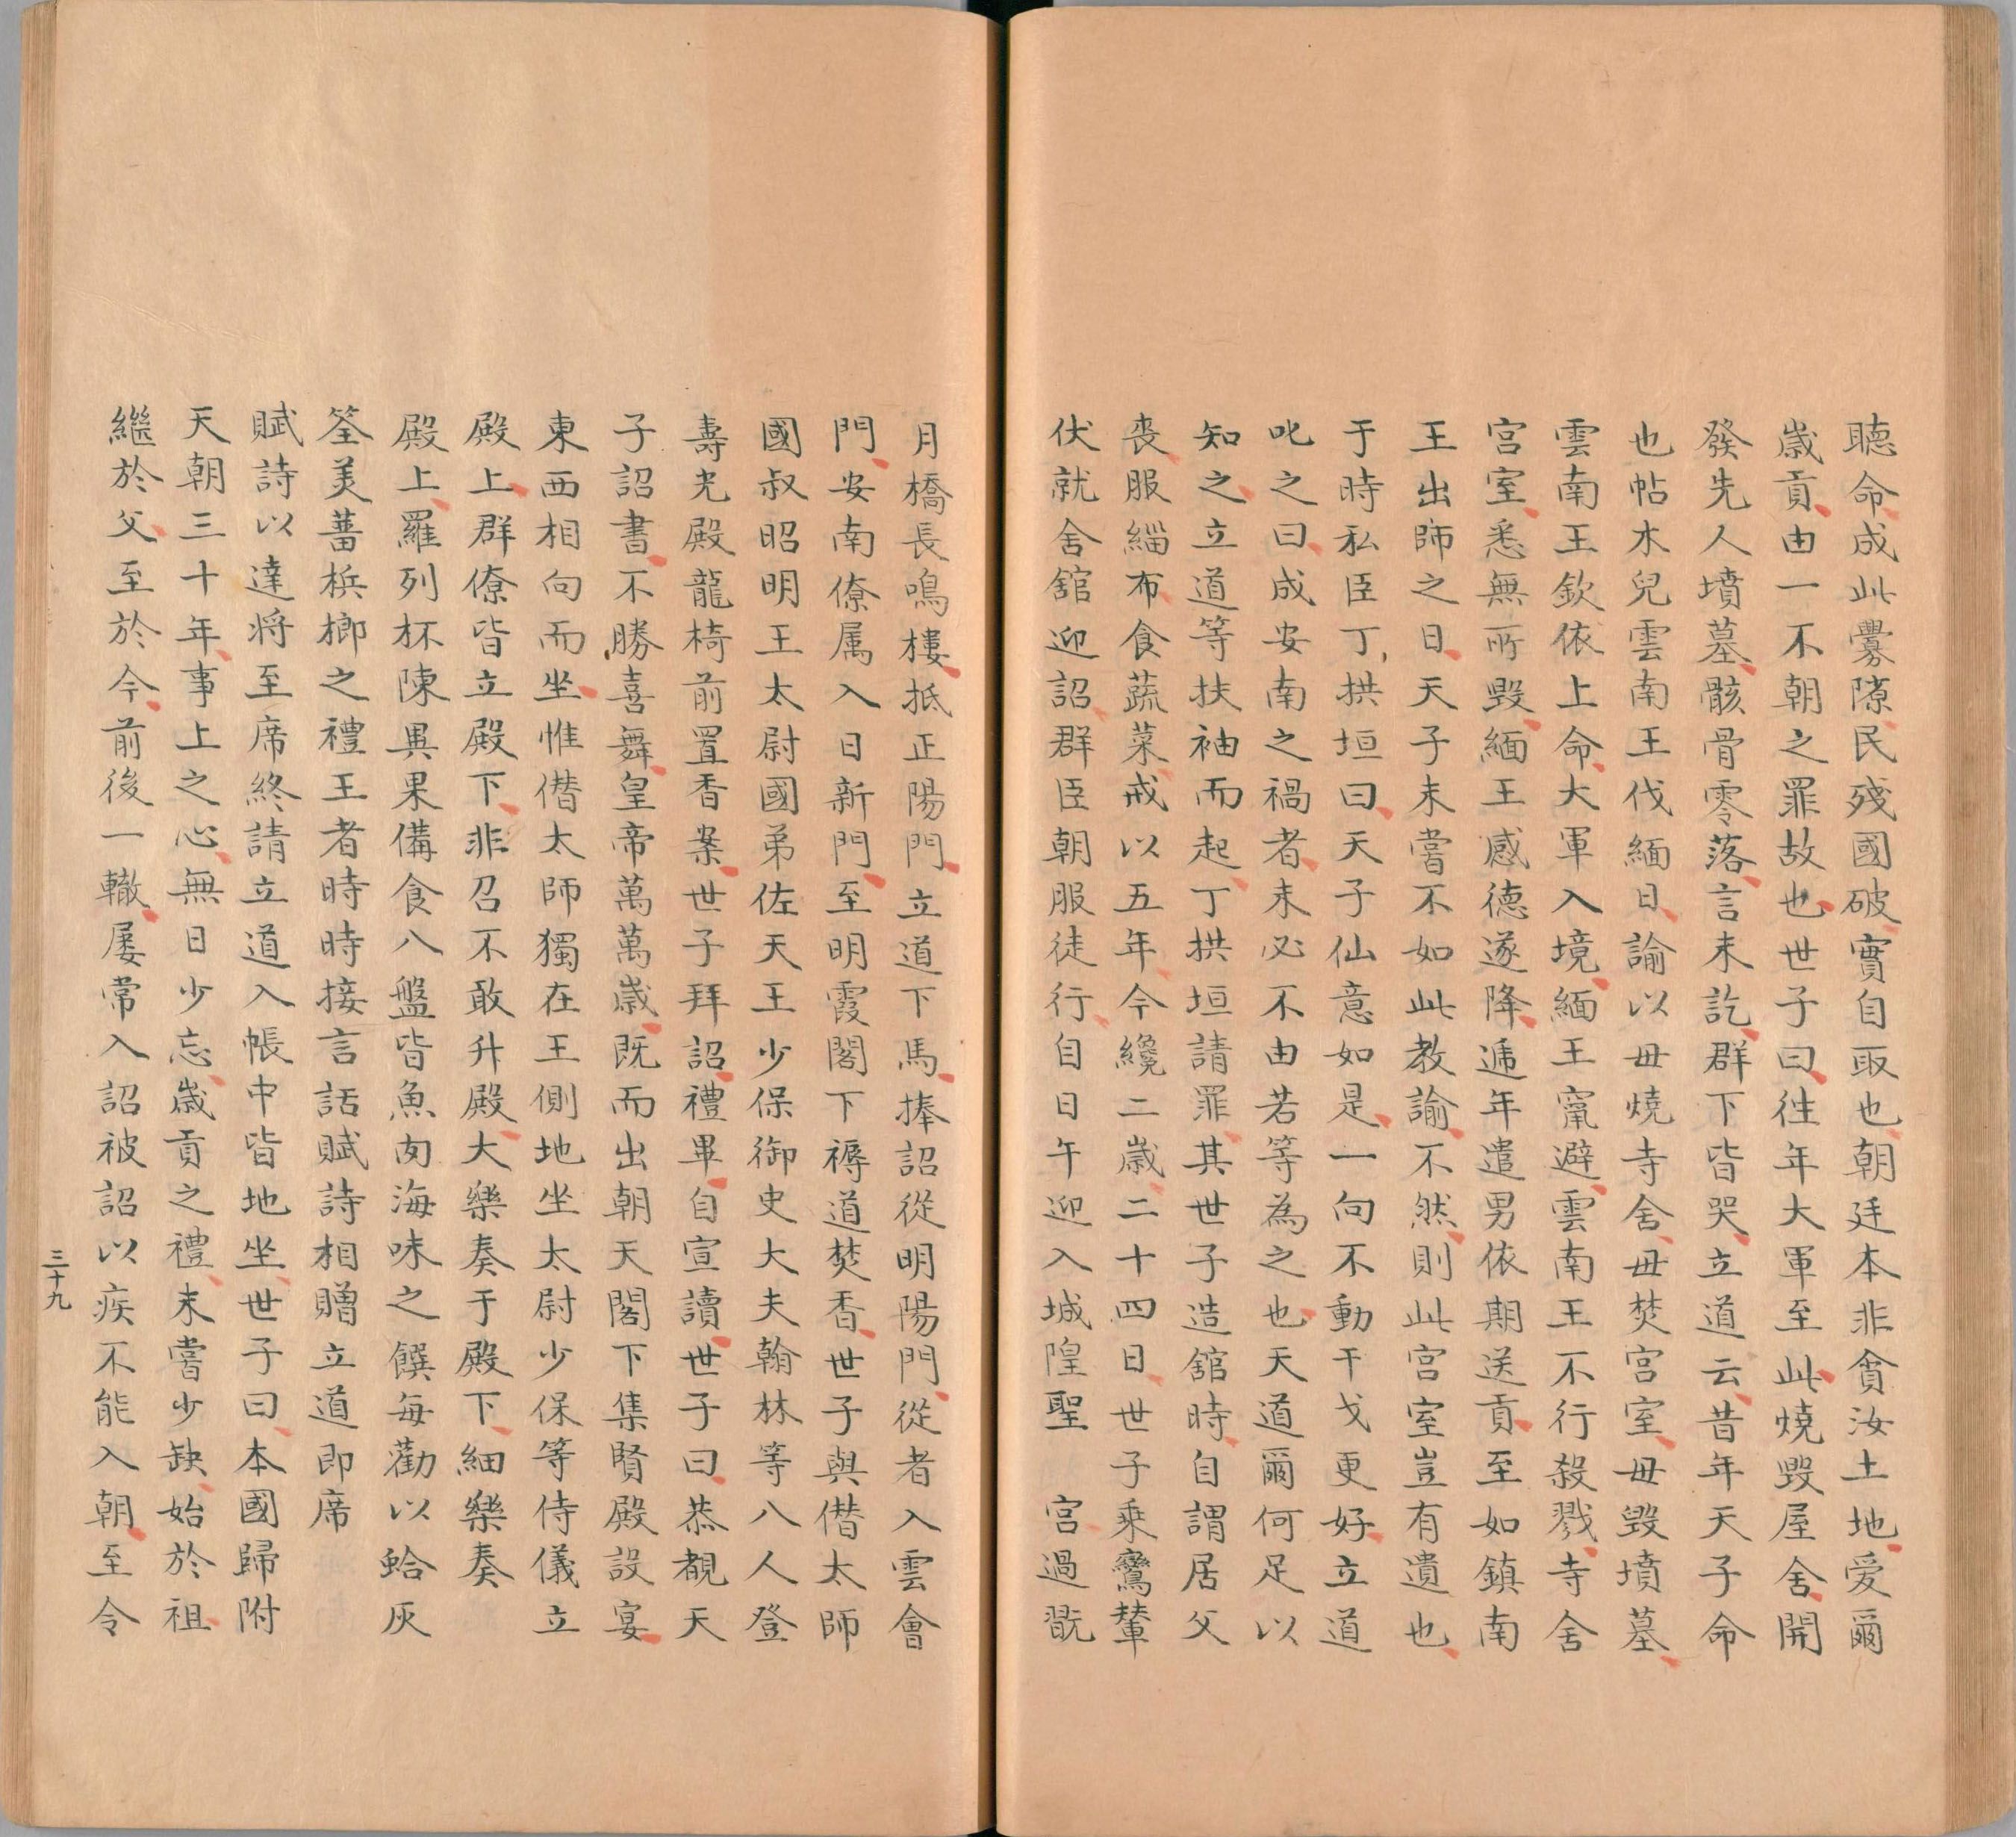 聽命成此釁隙民殘國破實自取也朝廷本非貪汝土地愛爾
歲貢由一不朝之罪故也世子曰往年大軍至此燒毀屋舍開
發先人墳墓骸骨零落言未訖群下皆哭立道云昔年天子命
也帖木兒雲南王伐緬日諭以毋燒寺舍毋焚宮室毋毀墳墓
雲南王欽依上命大軍入境緬王竄避雲南王不行殺戮寺舍
宮室悉無所毀緬王感德遂降遞年遣男依期送貢至如鎮南
王出師之日天子未嘗不如此教諭不然則此宮室豈有遺也
于時私臣丁拱垣曰天子仙意如是一向不動干戈更好立道
叱之曰成安南之禍者未必不由若等為之也天道爾何足以
知之立道等扶袖而起丁拱垣請罪其世子造舘時自謂居父
喪服緇布食蔬菜戒以五年今纔二歲二十四日世子乘鸞輦
伏就舍舘迎詔群臣朝服徒行自日午迎入城隍聖　宮過翫
月橋長鳴樓抵正陽門立道下馬捧詔從明陽門從者入雲會
門安南僚属入日新門至明霞閣下褥道焚香世子與偕太師
國叔昭明王太尉國弟佐天王少保御史大夫翰林等八人登
壽光殿龍椅前置香案世子拜詔禮畢自宣讀世子曰恭覩天
子詔書不勝喜舞皇帝萬萬歲既而出朝天閣下集賢殿設宴
東西相向而坐惟偕太師獨在王側地坐太尉少保等侍儀立
殿上群僚皆立殿下非召不敢升殿大樂奏于殿下細樂奏
殿上羅列杯陳異果備食八盤皆魚肉海味之饌每勸以蛤灰
筌美蕃梹榔之禮王者時時接言話賦詩相贈立道即席
賦詩以達將至席終請立道入帳中皆地坐世子曰本國歸附
天朝三十年事上之心無日少忘歲貢之禮未嘗少缺始於祖
繼於父至於今前後一轍屡常入詔被詔以疾不能入朝至令
三十九